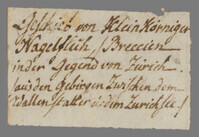 Geschieb von Klein Körniger
Nagelfluh / Breccien
in der Gegend von Zürich
(aus den Gebirgen Zwischen dem
Wallenstatter u dem Zurich See)